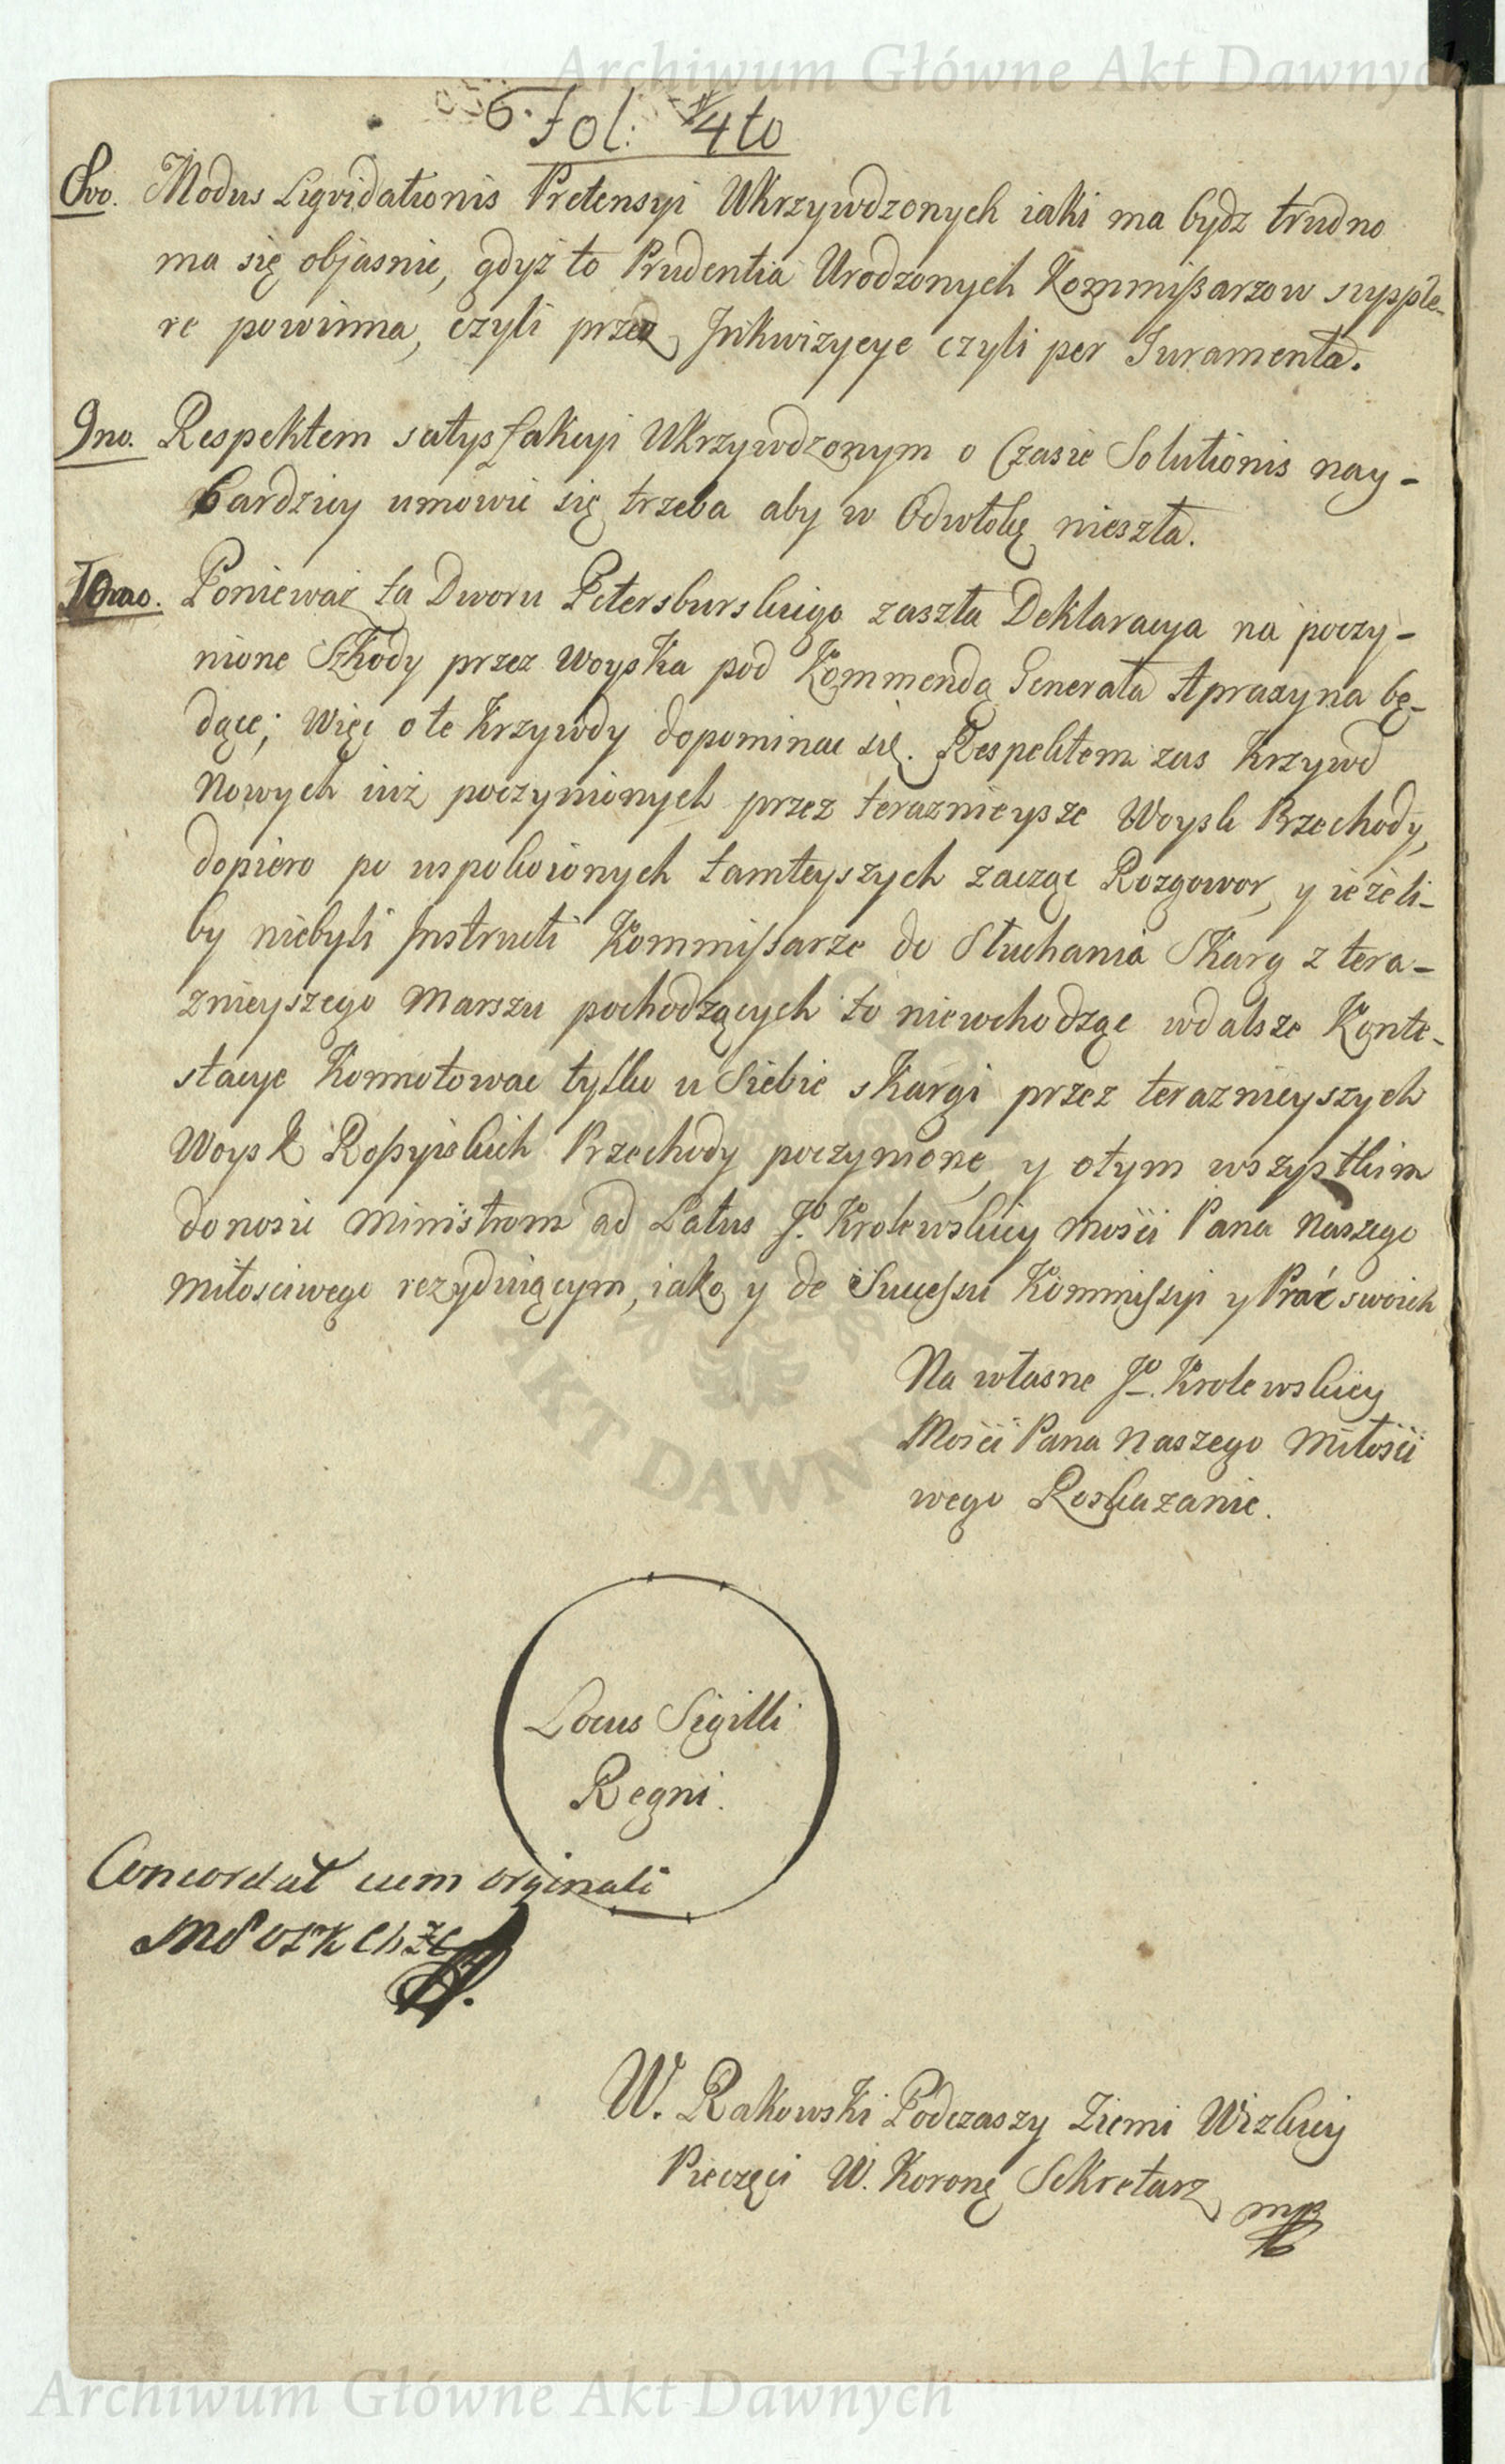 Archiwum Główne Akt Dawnych
6. Fol: 4to
8vo. Modus Liqvidationis Pretensyi Ukrzywdzonych iaki ma bydz trudno
ma się objasnic, gdyż to Prudentia Urodzonych Kommißarzow supple-
re powinna, czyli przez Inkwizycye czyli per Juramenta.
9no. Respektem satysfakcyi Ukrzywdzonym o Czasie Solutionis nay-
bardziey umowic się trzeba aby w Odwłokę nieszła.
10mo. Ponieważ ta Dworu Petersburskiego zaszła Deklaracya na poczy-
nione Szkody przez Woyska pod Kommendą Generała Apraxyna bę-
dące; Więc o te Krzywdy dopominac się. Respektem zas Krzywd
Nowych iuż poczynionych przez teraznieysze Woysk Przechody,
dopiero po uspokoionych tamteyszych zacząc Rozgowor, y ieżeli-
by niebyli Instructi Kommissarze do Słuchania Skarg z tera-
znieyszego Marszu pochodzących to niewchodząc wdalsze Konte-
stacye Konnotowac tylko u Siebie skargi przez teraznieyszych
Woysk Roßyiskich Przechody poczynione, y otym wszystkim
donosic Ministrom ad Latus Jo. Krolewskiey Mosci Pana Naszego
Miłosciwego rezyduiącym, iako y de Sucessu Kommissyi y Prac swoich
Na własne Jo. Krolewskiey
Mosci Pana Naszego Miłosci
wego Roskazanie.
Locus Sigilli
Regni.
Concordat cum orginali
W. Rakowski Podczaszy Ziemi Wizkiey
Pieczęci W. Koronę Sekretarz mp
AKT DAWNYCH
Archiwum Główne Akt Dawnych